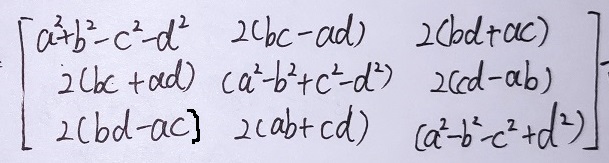 a²+b²-c²-d² 2(bc-ad) 2(bd+ac)
2(bc+ad) (a²-b²+c²-d²) 2(cd-ab)
2(bd-ac) 2(ab+cd) (a²-b²-c²+d²)